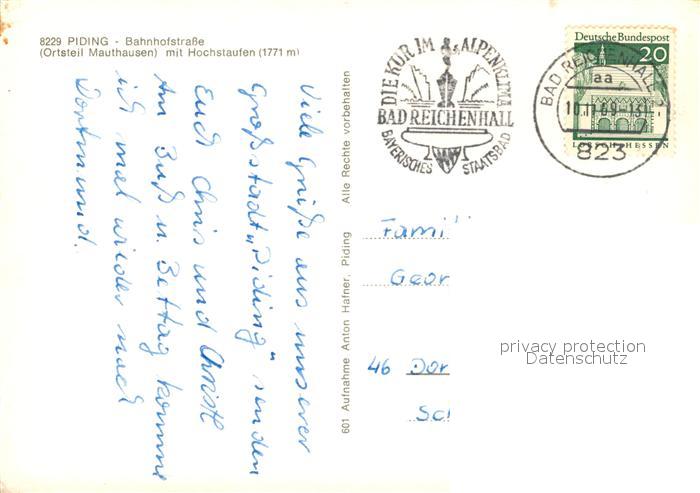 8229 PIDING - Bahnhofstraße
(Ortsteil Mauthausen) mit Hochstaufen (1771 m)
Viele Grüße aus unserer
Großstadt „Piding" senden
Euch Chris und Christl
Am Buß u. Bettag komme
ich mal wieder nach
Dortmund.
601 Aufnahme Anton Hafner, Piding Alle Rechte vorbehalten
DIE KUR IM ALPENKLIMA
BAD REICHENHALL
BAYERISCHES STAATSBAD
BAD REICHENHALL
aa
10.11.69-13
823
Deutsche Bundespost
20
LORSCH/HESSEN
Fami
Geor
46 Dor
Sc
privacy protection
Datenschutz